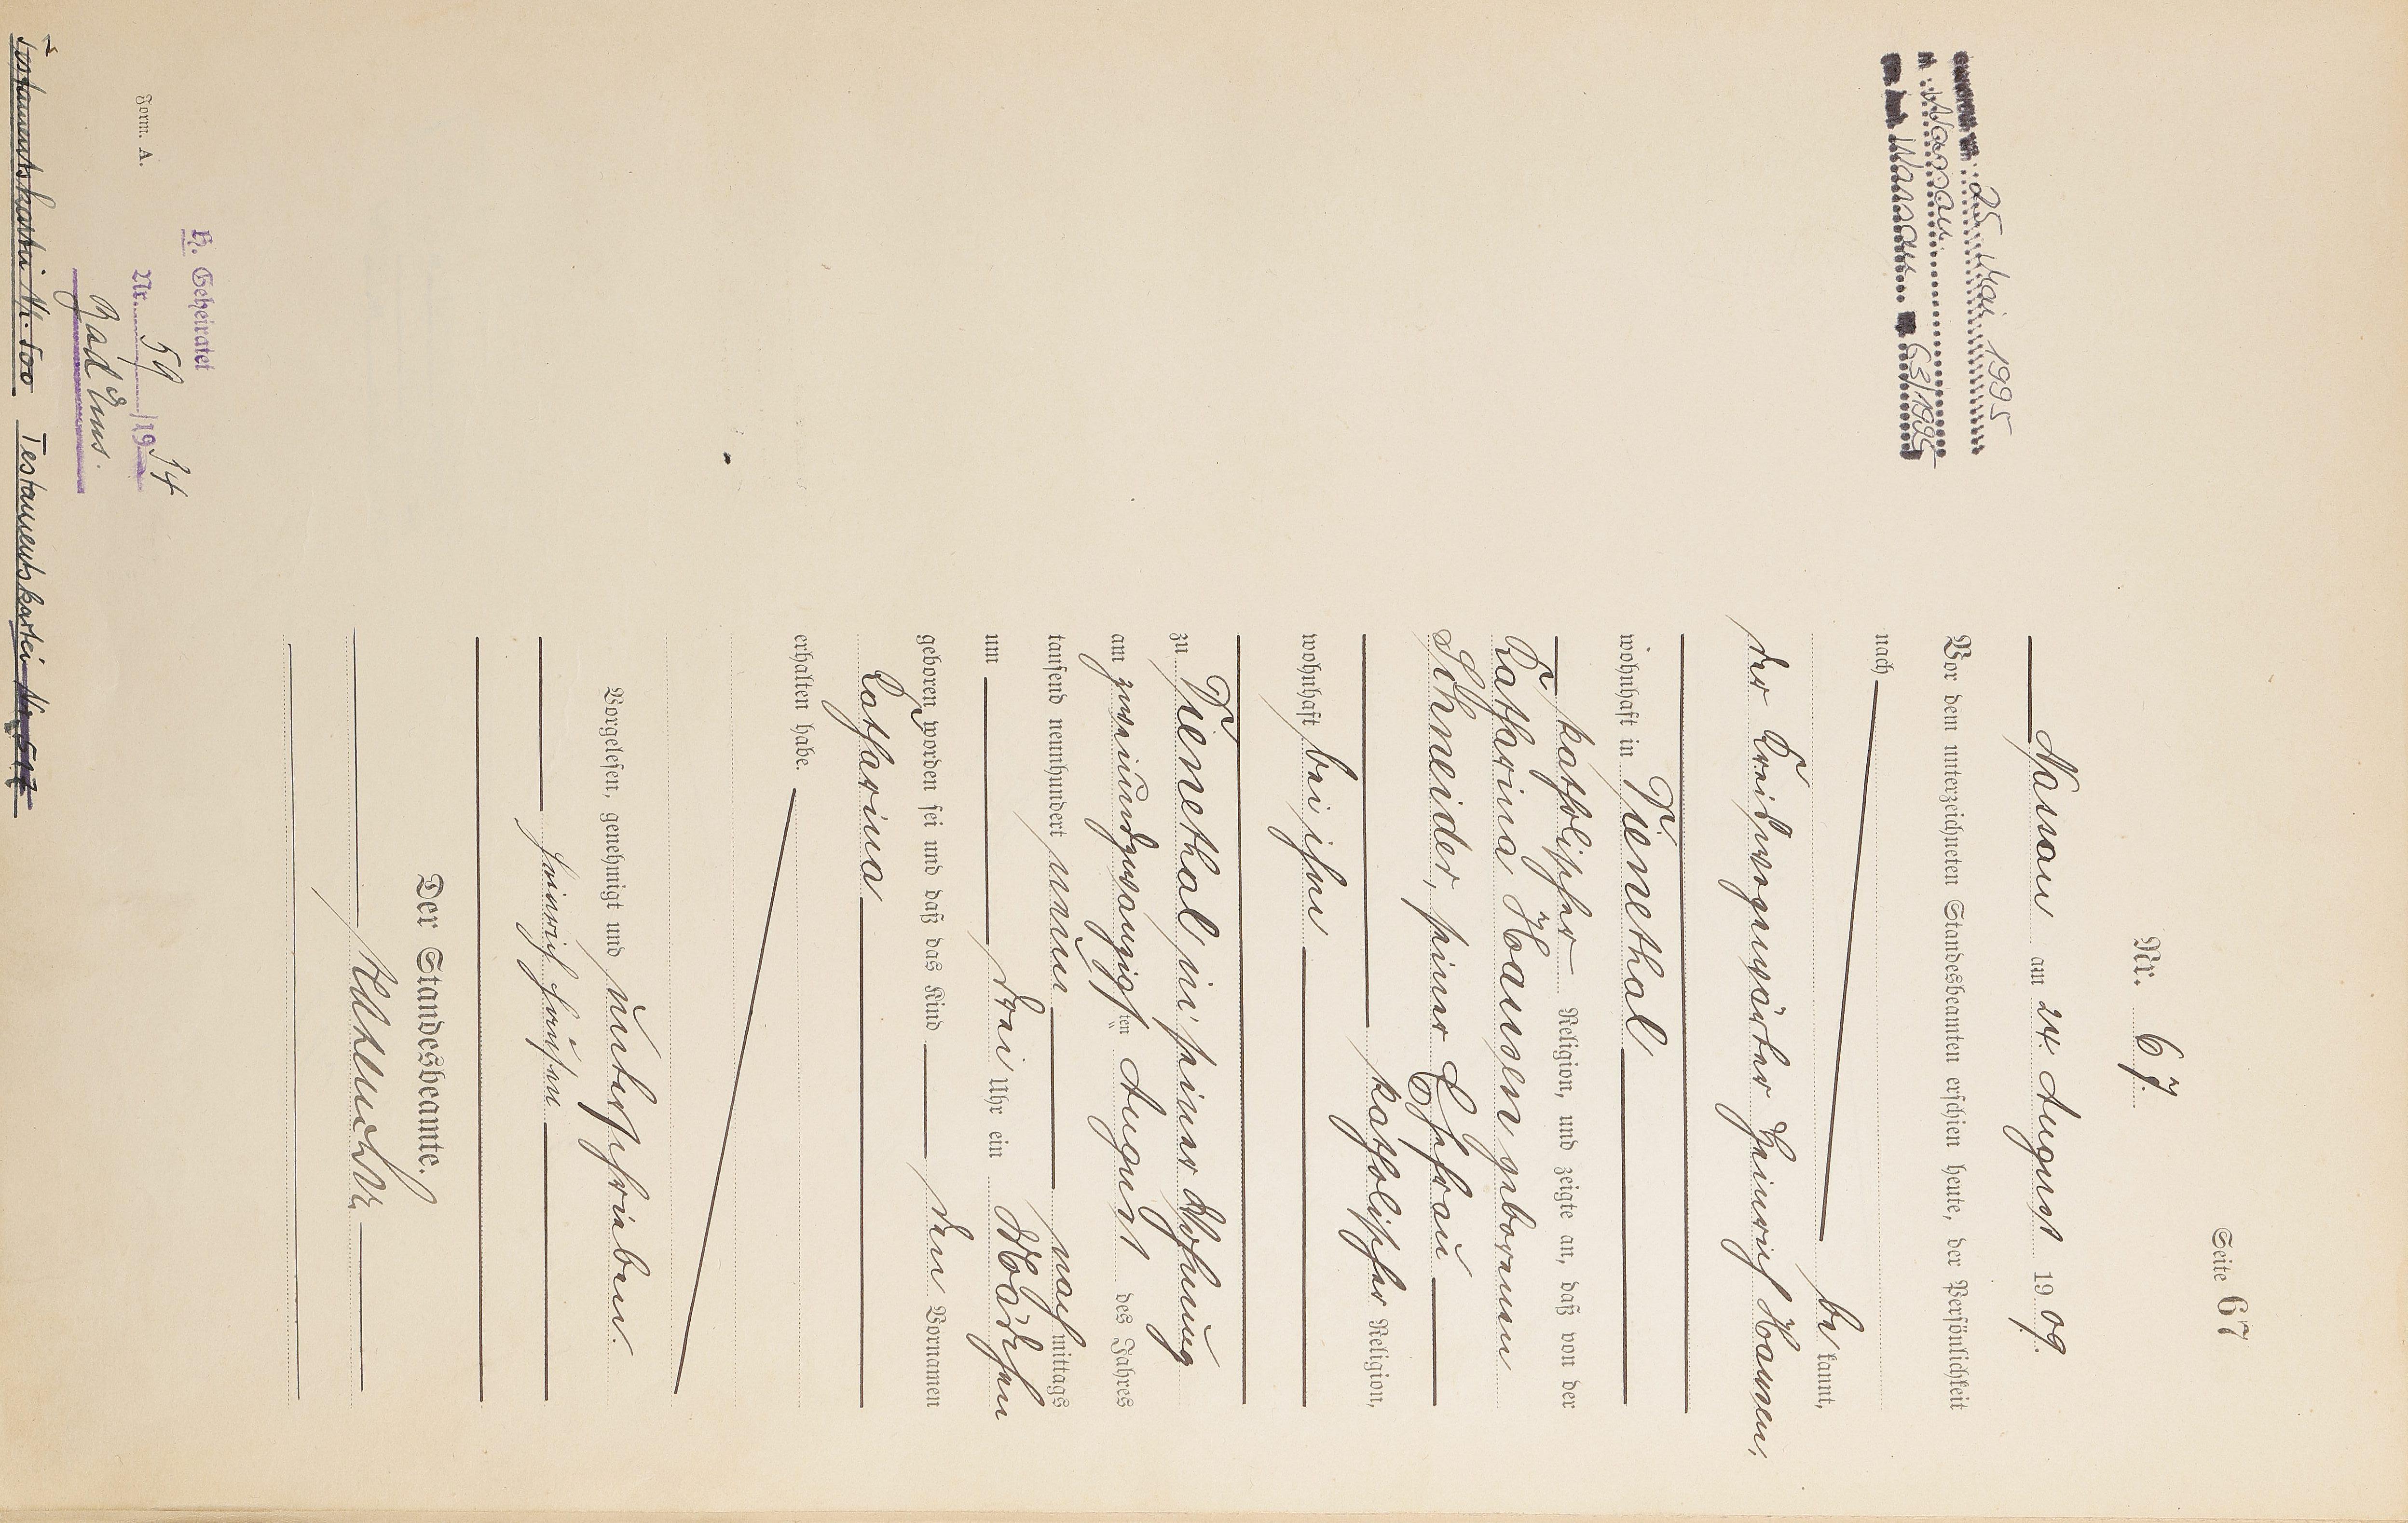 Seite 67
Nr. 67.
Nassau am 24. August 1909.
Vor dem unterzeichneten Standesbeamten erschien heute, der Persönlichkeit
nach
bekannt,
der Heinrich Hausen,
wohnhaft in Dienethal
katholischer Religion, und zeigte an, daß von der
Katharina Hausen geborenen
Schneider, seiner Ehefrau
katholischer Religion,
wohnhaft bei ihm
zu Dienethal in seiner Wohnung
am zweiundzwanzigsten August des Jahres
tausend neunhundert neun nachmittags
um drei Uhr ein Mädchen
geboren worden sei und daß das Kind den Vornamen
Katharina
erhalten habe.
Vorgelesen, genehmigt und unterschrieben.
Heinrich Hausen
Der Standesbeamte.
25. Mai 1995
Nassau
Nassau 63/1995
H. Geheiratet
Nr. 59/1934
Bad Ems.
Form. A.
Testamentskartei Nr. 500 Testamentskartei Nr. 517